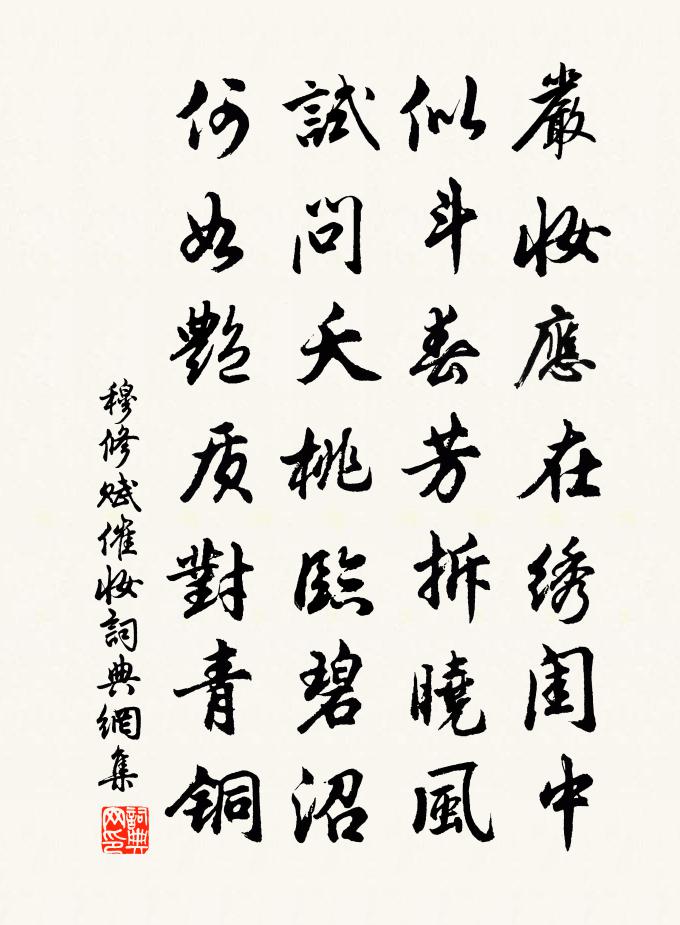 嚴妝應在綉閨中
似斗春芳拆曉風
試問夭桃臨碧沼
何如艷质對青銅
穆修賦催妝詞典網集
詞典网印